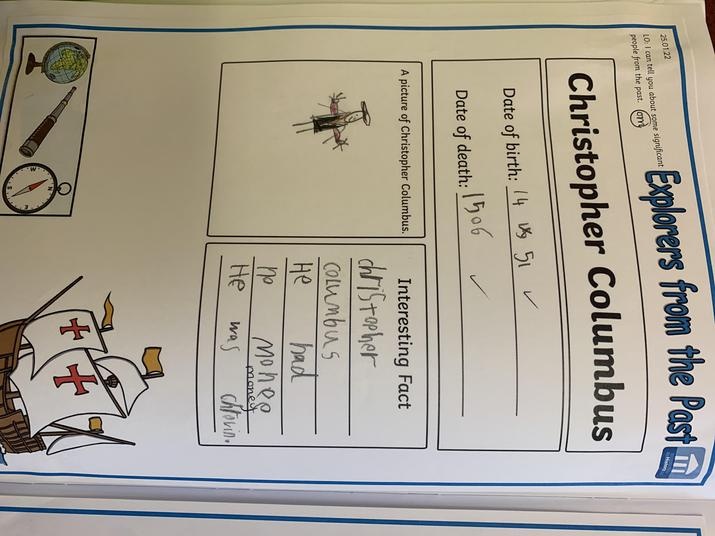 25.01.22
LO: I can tell you about some significant
people from the past.
Explorers from the Past
Christopher Columbus
Date of birth: 14 51
Date of death: 1506
A picture of Christopher Columbus.
Interesting Fact
christopher
columbus
He had
no mones
money
He was
N
E
S
W